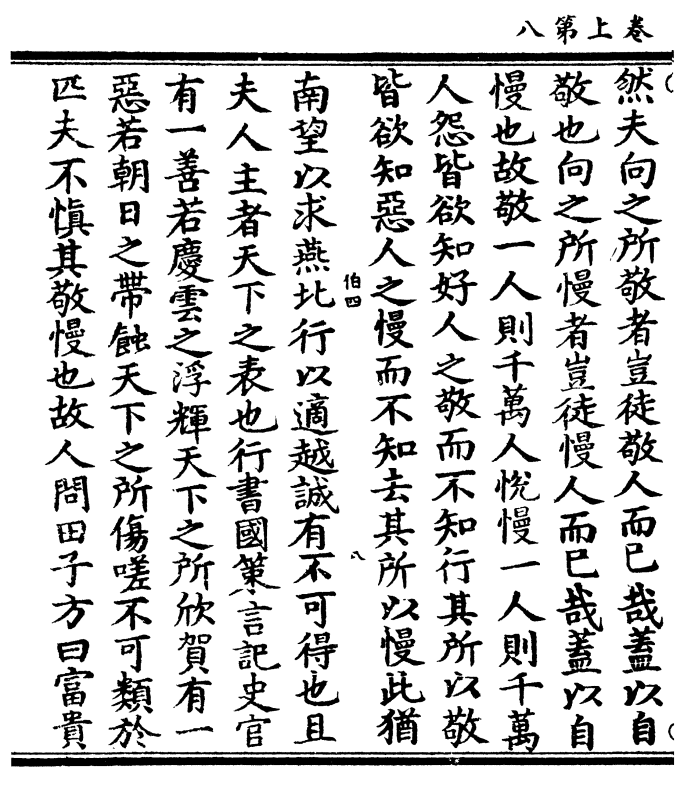 卷上第八
然夫向之所敬者豈徒敬人而已哉蓋以自
敬也向之所慢者豈徒慢人而已哉蓋以自
慢也故敬一人則千萬人悅慢一人則千萬
人怨皆欲知好人之敬而不知行其所以敬
皆欲知惡人之慢而不知去其所以慢此猶
伯四
八
南望以求燕北行以適越誠有不可得也且
夫人主者天下之表也行書國策言記史官
有一善若慶雲之浮輝天下之所欣賀有一
惡若朝日之帶蝕天下之所傷嗟不可類於
匹夫不慎其敬慢也故人問田子方曰富貴